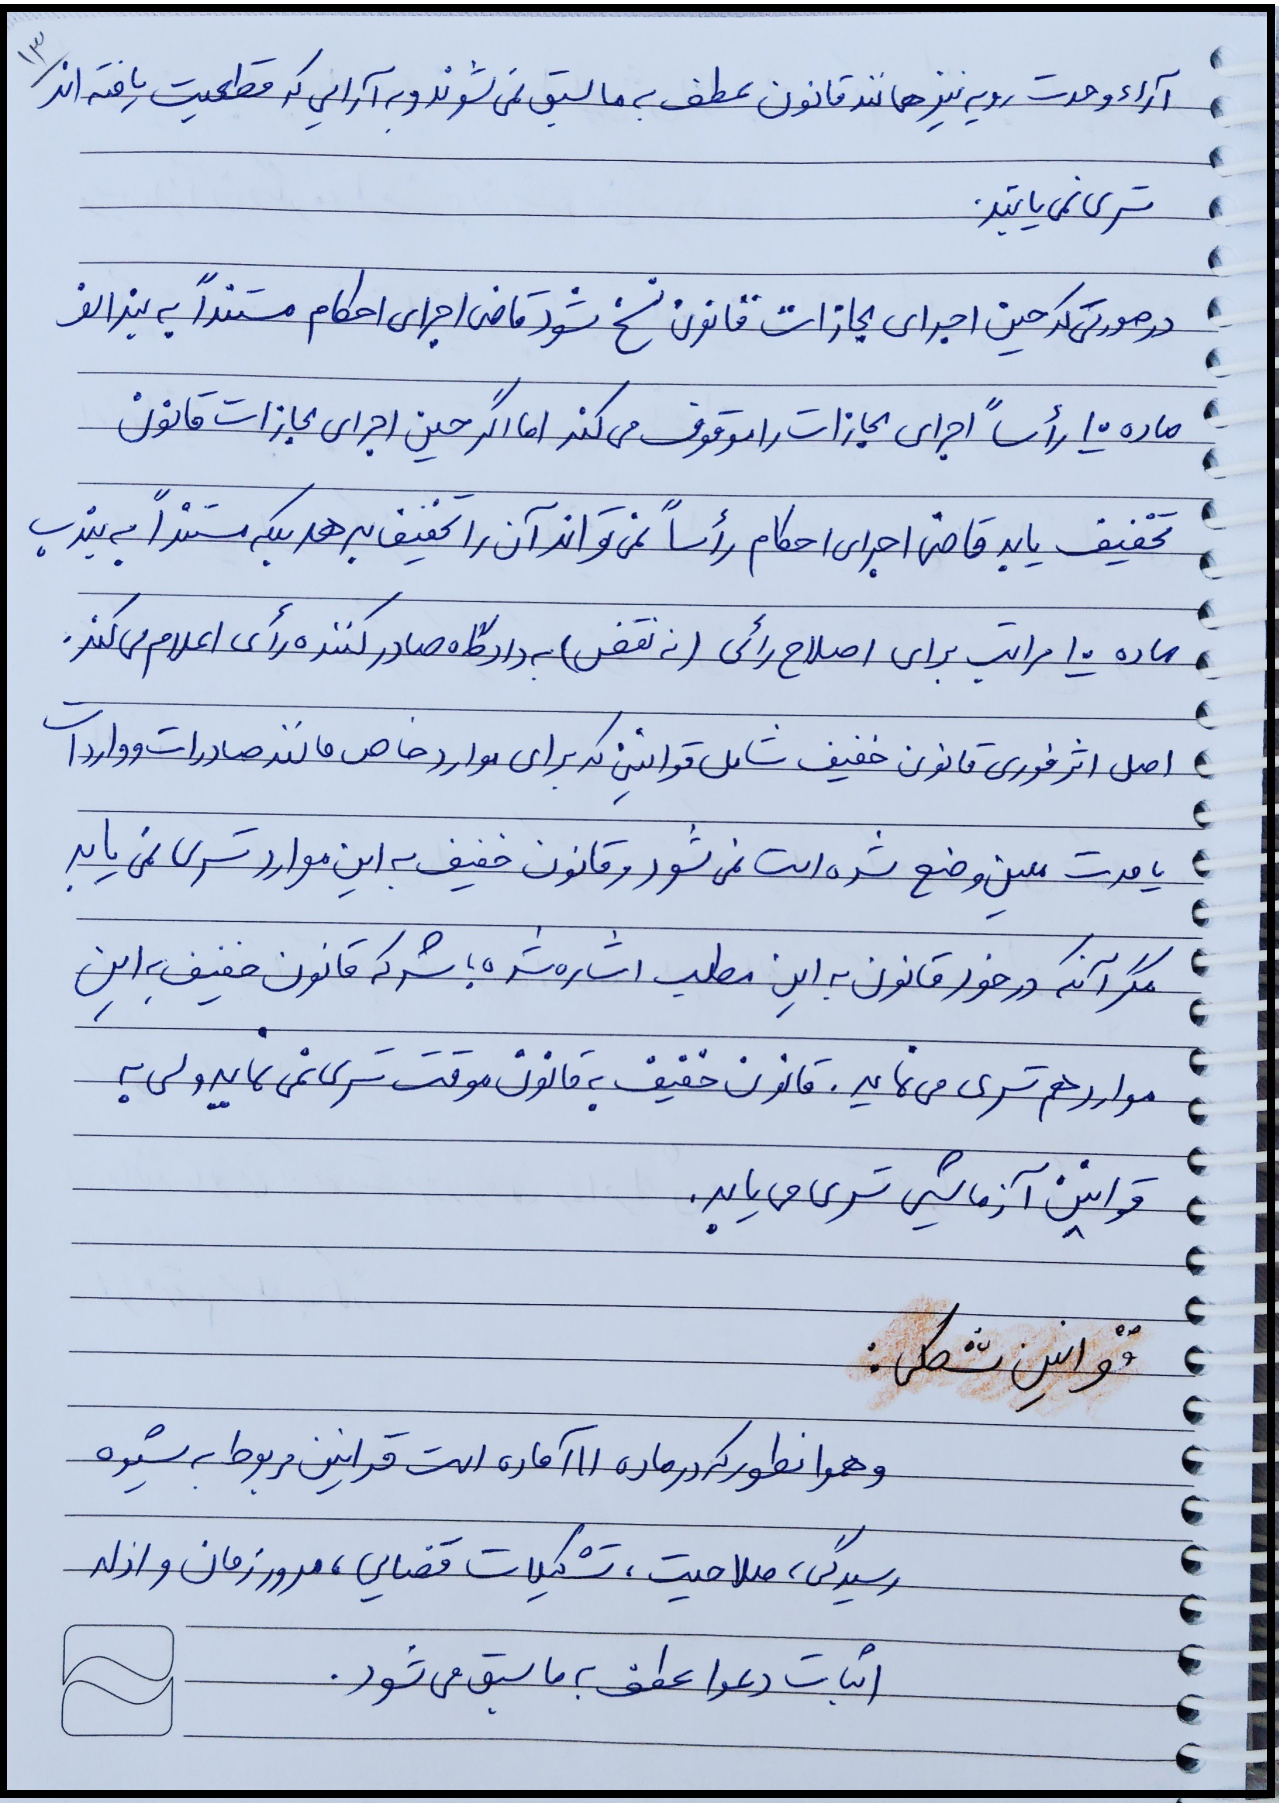 ۱۳
آراء وحدت رویه نیز همانند قانون عطف به ماسبق نمی شوند و به آرایی که قطعیت یافته اند
تسری نمی یابند.
در صورتی که حین اجرای مجازات قانون نسخ شود قاضی اجرای احکام مستنداً به بند الف
ماده ۱۰ رأساً اجرای مجازات را موقوف می کند اما اگر حین اجرای مجازات قانون
تخفیف یابد قاضی اجرای احکام رأساً نمی تواند آن را تخفیف بدهد بلکه مستنداً به بند ب
ماده ۱۰ مراتب برای اصلاح رائی (نه نقض) به دادگاه صادر کننده رأی اعلام می کند.
اصل اثر فوری قانون خفیف شامل قوانینی که برای موارد خاص مانند صادرات و واردات
یا مدت معین وضع شده است نمی شود و قانون خفیف به این موارد تسری نمی یابد
مگر آنکه در خود قانون به این مطلب اشاره شده باشد که قانون خفیف به این
موارد هم تسری می نماید. قانون خفیف به قانون موقت تسری نمی نماید ولی به
قوانین آزمایشی تسری می یابد.
قوانین شکلی:
و همانطور که در ماده ۱۱ آمده است قوانین مربوط به شیوه
رسیدگی، صلاحیت، تشکیلات قضایی، مرور زمان و ادله
اثبات دعوا عطف به ماسبق می شود.